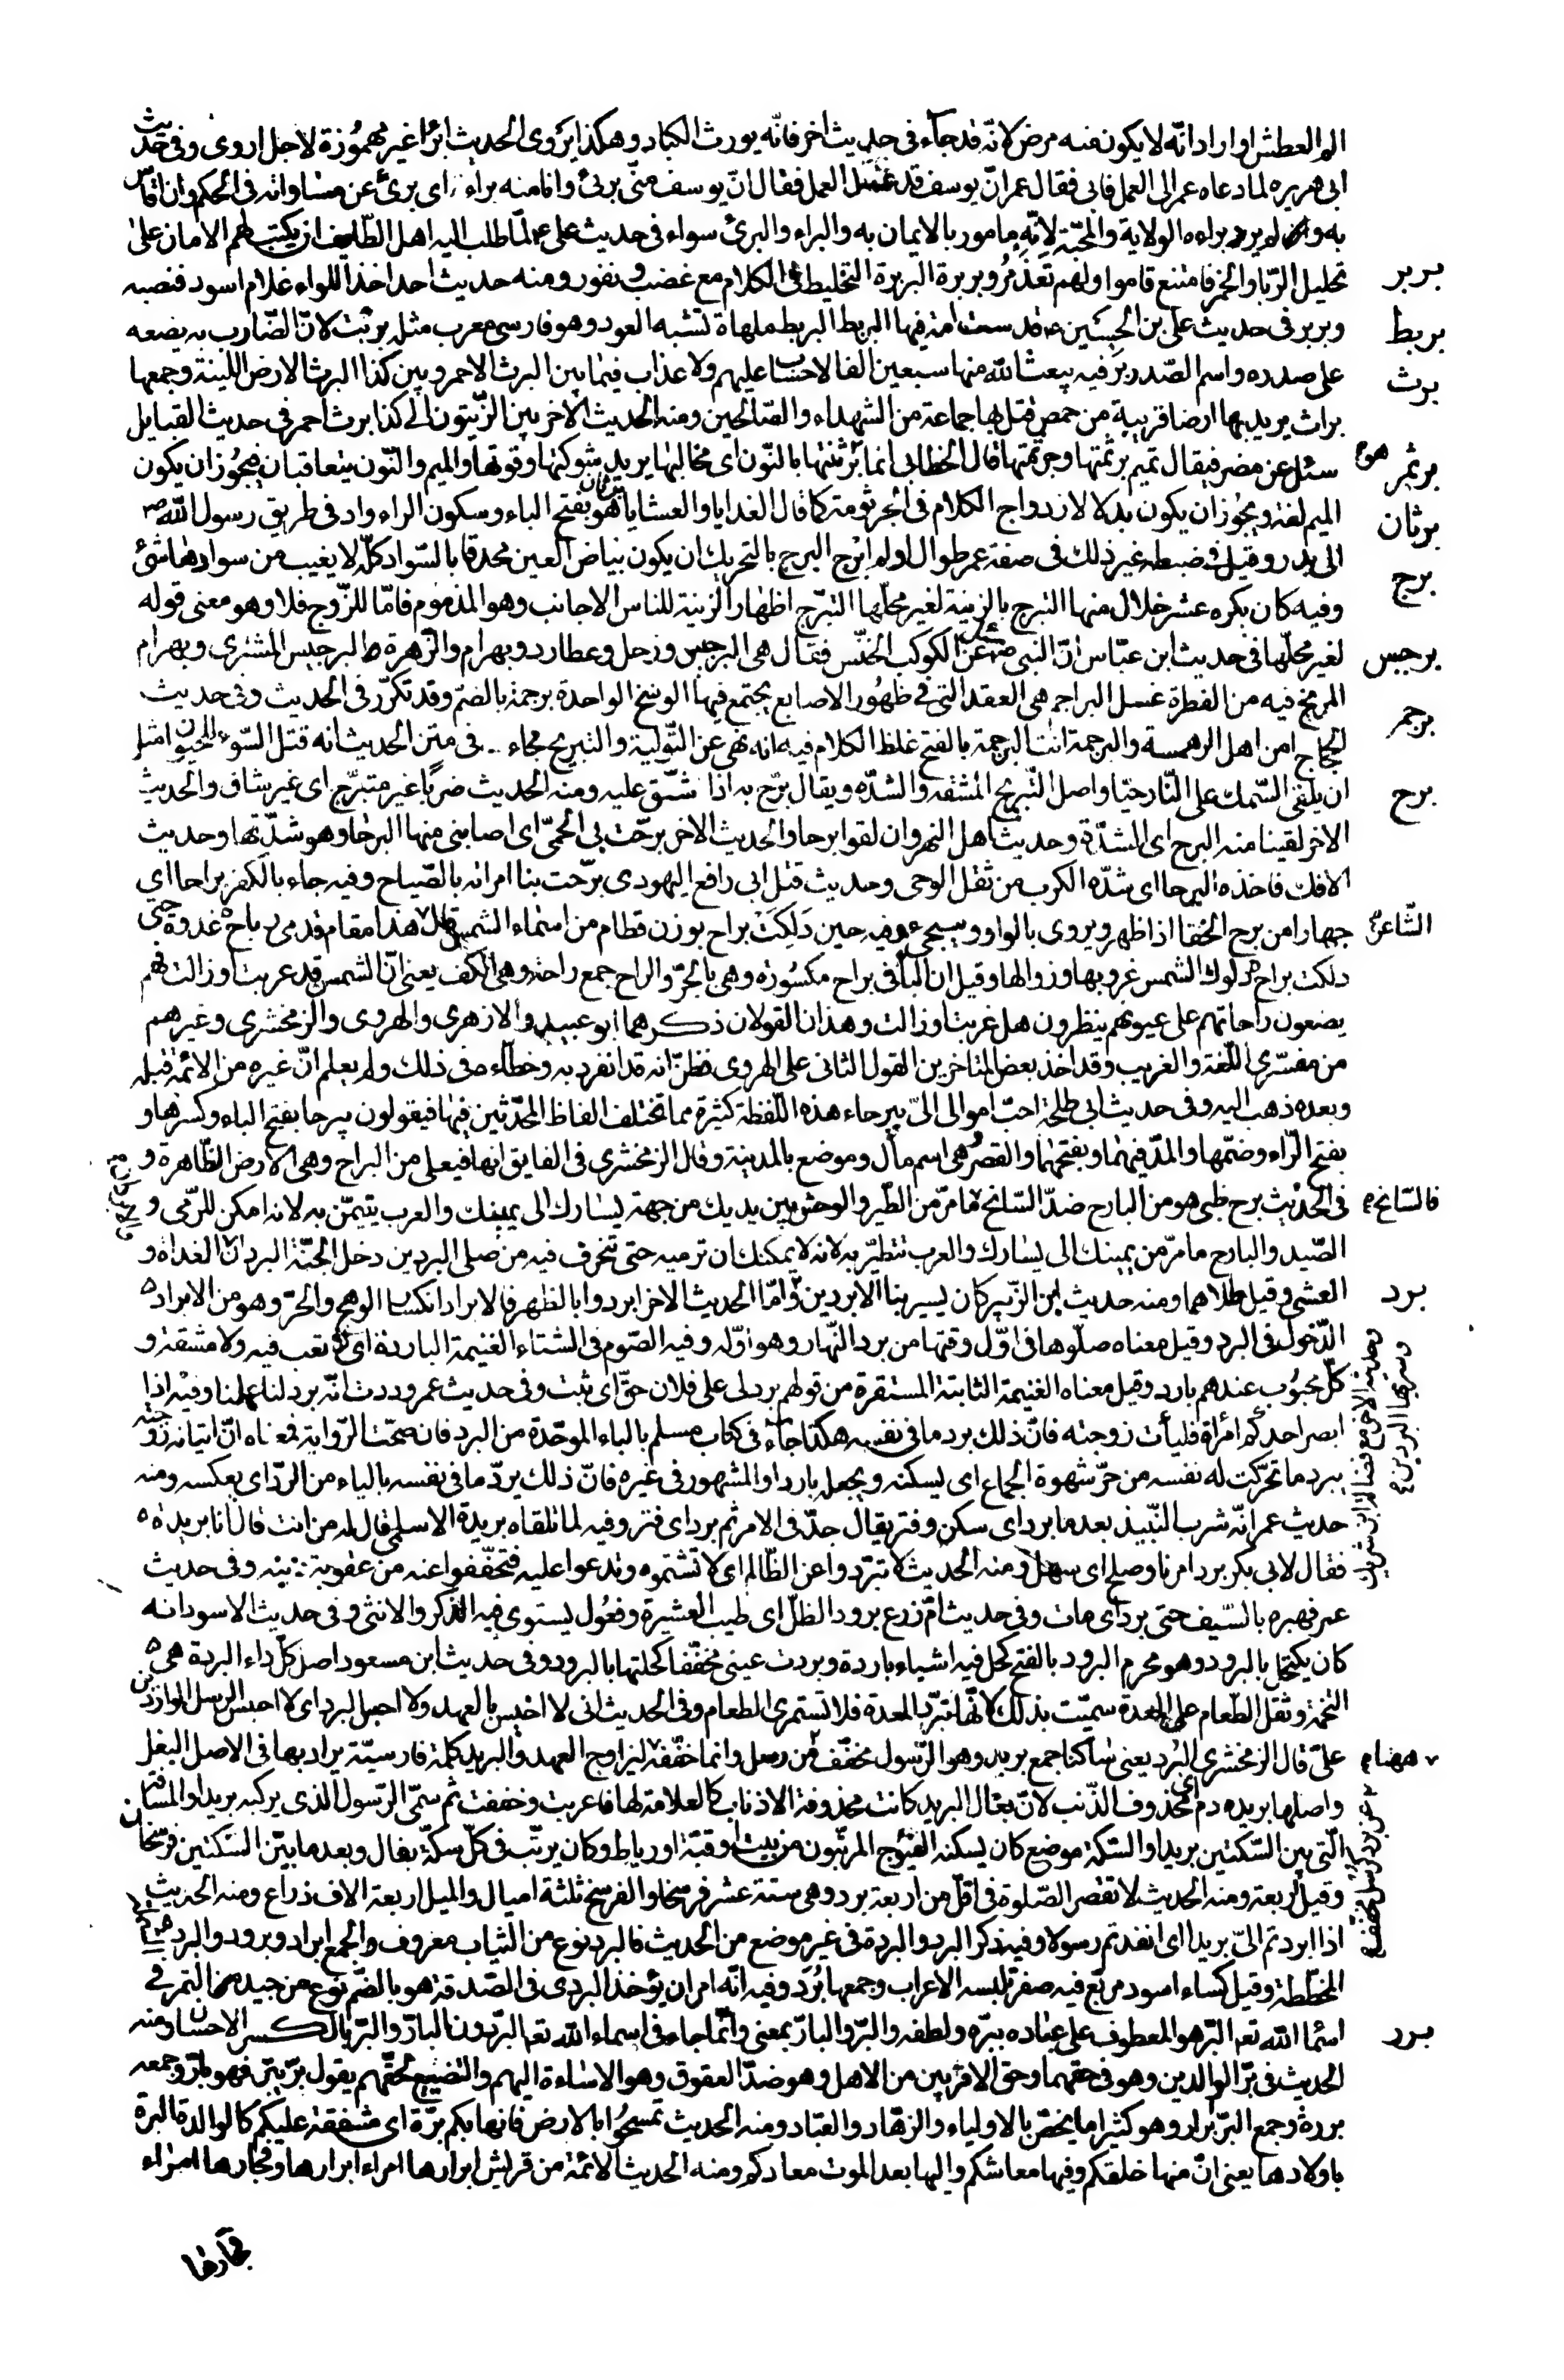 الم العطش او اراد انّه لا يكون منه مرض لانّه قد جآء فى حديث اخر فانّه يورث الكباد وهكذا يروى الحديث ابرا غير مهموزة لاجل اروى وفى حديث
ابى هريره لما دعاه عمر الى العمل فابى فقال عمر انّ يوسف قد سئل العمل فقال انّ يوسف منّى برئ وانا منه براء اى برئ عن مساواته فى الحكم وان اقاس
به ولم يرد براءه الولاية والمحبّة لانّه مامور بالايمان به والبراء والبرئ سواء فى حديث على ع لمّا طلب اليه اهل الطّايف ان يكتب لهم الامان على
بربر تحليل الرّبا والخمر فامتنع قاموا ولهم تغذمر وبربرة البربرة التخليط فى الكلام مع غضب ونفور ومنه حديث احد اخذ اللواء غلام اسود فنصبه
بربط وبربر فى حديث على بن الحسين ع لا قدست امة فيها البربط البربط ملهاة تشبه العود وهو فارسى معرب مثله بربت لانّ الضّارب به يضعه
برث على صدره واسم الصّدر بر فيه يبعث الله منها سبعين الفا لاحساب عليهم ولا عذاب فيما بين البرث الاحمر وبين كذا البرث الارض اللّينة وجمعها
براث يريد بها ارضا قريبة من حمص قتل بها جماعة من الشهداء والصّالحين ومنه الحديث الاخر بين الزّيتون الى كذا برث احمر فى حديث القبايل
برثم سئل عن مضر فقال تميم برثمتها وجرثمتها قال الخطابى انما برثنتها بالنّون اى مخالبها يريد شوكتها وقوتها والميم والنّون يتعاقبان فيجوز ان يكون
برثان الميم لغة ويجوز ان يكون بدلا لازدواج الكلام فى الجرثومة كما قال الغدايا والعشايا برثان هو بفتح الباء وسكون الراء واد فى طريق رسول الله ص
برج الى بدر وقيل فى ضبطه غير ذلك فى صفة عمر طوال ادلم ابرج البرج بالتحريك ان يكون بياض العين محدقا بالسّواد كلّه لا يغيب من سوادها شئ
وفيه كان يكره عشر خلال منها التبرج بالزينة لغير محلّها التبرّج اظهار الزينة للناس الاجانب وهو المذموم فامّا للزّوج فلا وهو معنى قوله
برجس لغير محلّها فى حديث ابن عبّاس انّ النبى ص سئل عن الكوكب الخنّس فقال هى البرجيس وزحل وعطارد وبهرام والزّهرة البرجيس المشترى وبهرام
برجم المريخ فيه من الفطرة غسل البراجم هى العقد التى فى ظهور الاصابع يجتمع فيها الوسخ الواحدة برجمة بالضمّ وقد تكرّر فى الحديث وفى حديث
الحجّاج امن اهل الرهمسة والبرجمة انت البرجمة بالفتح غلظ الكلام فيه انه نهى عن التّولية والتبريح جاء فى متن الحديث انه قتل السّوء للحيوان مثل
برح ان يلقى السّمك على النّار حيّا واصل التّبريح المشقة والشدّه ويقال برّح به اذا شقّ عليه ومنه الحديث ضربًا غير مبرّح اى غير شاق والحديث
الاخر لقينا منه البرح اى الشدّة وحديث اهل النهروان لقوا برحا والحديث الاخر برّحت بى الحمّى اى اصابنى منها البرحا وهو شدّتها وحديث
الافك فاخذه البرحا اى شدّه الكرب من ثقل الوحى وحديث قتل ابى رافع اليهودى برّحت بنا امرانه بالصّياح وفيه جاء بالكفر براحا اى
الشّاعر جهارا من برح الخفا اذا ظهر ويروى بالواو وسيجئ وفيه حين دَلكت براح بوزن قطام من اسماء الشمس قال هذا مقام قدمى رباح غدوة حتى
دلكت براح دلوك الشمس غروبها وزوالها وقيل ان الباء فى براح مكسورة وهى بالجرّ والراح جمع راحة وهى الكف يعنى انّ الشمس قد غربت او زالت فهم
يضعون راحاتهم على عيونهم ينظرون هل غربت او زالت وهذان القولان ذكرهما ابو عبيد والازهرى والهروى والزمخشرى وغيرهم
من مفسّرى اللّغة والغريب وقد اخذ بعض المتاخرين القول الثانى على الهروى فظنّ انه قد انفرد به وخطّاه فى ذلك ولم يعلم انّ غيره من الائمة قبله
وبعده ذهب اليه وفى حديث ابى طلحة احبّ اموالى الىّ بيرحاء هذه اللّفظة كثيرة مما تختلف الفاظ المحدّثين فيها فيقولون بيرحا بفتح الباء وكسرها و
بفتح الرّاء وضمّها والمدّ فيهما وبفتحهما والقصر هى اسم مال وموضع بالمدينة وقال الزمخشرى فى الفايق انها فيعلى من البراح وهى الارض الظّاهرة و
فالسّانح فى الحديث برح ظبى هو من البارح ضدّ السّانح ما مرّ من الطّير والوحش بين يديك من جهة يسارك الى يمينك والعرب يتيمّن به لانه امكن للرّمى و
الصّيد والبارح ما مرّ من يمينك الى يسارك والعرب تتطيّر به لانه لا يمكنك ان ترميه حتى تنحرف فيه من صلى البردين دخل الجنّة البردان الغداة و
برد العشى وقيل ظلاهما ومنه حديث ابن الزّبير كان يسير بنا الابردين وامّا الحديث الاخر ابردوا بالظهر فالابراد انكسار الوهج والحرّ وهو من الابراد
الدّخول فى البرد وقيل معناه صلّوها فى اوّل وقتها من برد النّهار وهو اوّله وفيه الصّوم فى الشتاء الغنيمة الباردة اى لا تعب فيه ولا مشقة و
كلّ محبوب عندهم بارد وقيل معناه الغنيمة الثابتة المستقرة من قولهم برد لى على فلان حقّ اى ثبت وفى حديث عمر وددت انّه برد لنا عملنا وفيه اذا
ابصر احدكم امرأة فليأت زوجته فانّ ذلك برد ما فى نفسه هكذا جآء فى كتاب مسلم بالباء الموحّدة من البرد فان صحّت الرّواية فمعناه انّ اتيانه زوجته
يبرد ما تحرّكت له نفسه من حرّ شهوة الجماع اى يسكنه ويجعله باردا والمشهور فى غيره فانّ ذلك يردّ ما فى نفسه بالياء من الردّ اى يعكسه ومنه
حديث عمر انّه شرب النّبيذ بعد ما برد اى سكن وفتر يقال جدّ فى الامر ثم برد اى فتر وفيه لما تلقاه بريدة الاسلمى قال له من انت قال انا بريده
فقال لابى بكر برد امرنا وصلح اى سهل ومنه الحديث لا تبرّدوا عن الظّالم اى لا تشتموه وتدعوا عليه فتخفّفوا عنه من عقوبة ذنبه وفى حديث
عمر فهبره بالسّيف حتى برد اى مات وفى حديث امّ زرع برود الظلّ اى طيب العشيرة وفعُول يستوى فيه الذّكر والانثى وفى حديث الاسود انه
كان يكتحل بالبرود وهو محرم البرود بالفتح كحل فيه اشياء باردة وبردت عينى مخفّفا كحلتها بالبرود وفى حديث ابن مسعود اصل كلّ داء البردة هى
التخمة وثقل الطّعام على المعدة سميّت بذلك لانّها تبرّد المعدة فلا تستمرئ الطعام وفى الحديث انى لا اخيس بالعهد ولا احبس البرد اى لا احبس الرسل الواردين
علىّ قال الزمخشرى البُرد يعنى ساكنا جمع بريد وهو الرّسول مخفّف من برد وانما خفّفه ليزاوج العهد والبريد كلمة فارسيّة يراد بها فى الاصل البغل
واصلها بريده دم اى محذوف الذّنب لانّ بغال البريد كانت محذوفة الاذناب كالعلامة لها فاعربت وخففت ثم سمّى الرّسول الذى يركبه بريدا والمسافة
الّتى بين السّكتين بريدا والسّكة موضع كان يسكنه الفيوج المرتّبون من بيت او قبّة او رباط وكان يرتّب فى كلّ سكّة بغال وبعد ما بين السّكتين فرسخان
وقيل اربعة ومنه الحديث لا تقصر الصّلوة فى اقلّ من اربعة برد وهى ستة عشر فرسخا والفرسخ ثلثة اميال والميل اربعة الاف ذراع ومنه الحديث
اذا ابردتم الىّ بريدا اى انفذتم رسولا وفيه ذكر البرد والبردة فى غير موضع من الحديث فالبرد نوع من الثياب معروف والجمع ابراد وبرود والبردة
المخطّطة وقيل كساء اسود مربّع فيه صغر تلبسه الاعراب وجمعها بُرَد وفيه انّه امر ان يؤخذ البردى فى الصّدقة هو بالضّم نوع من جيد التمر فى
برر اسماء الله تعا البَرّ هو العطوف على عباده ببرّه ولطفه والبرّ والبارّ بمعنى وانّما جاء فى اسماء الله تعا البرّ دون البارّ والبرّ بالكسر الاحسان ومنه
الحديث فى برّ الوالدين وهو فى حقهما وحق الاقربين من الاهل وهو ضدّ العقوق وهو الاساءة اليهم والتضييع لحقّهم يقول برّ يبرّ فهو بارّ وجمعه
بررة وجمع البرّ ابرار وهو كثيرا ما يخصّ بالاولياء والزهّاد والعبّاد ومنه الحديث تمسحُوا بالارض فانها بكم برّة اى مشفقة عليكم كالوالدة البرة
باولادها يعنى انّ منها خلقكم وفيها معاشكم واليها بعد الموت معادكم ومنه الحديث الائمّة من قريش ابرارها امراء ابرارها وفجارها امراء
فجارها